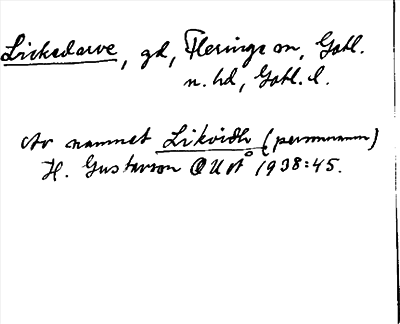 Lickedarve, gd, Fleringe sn, Gotl.
n. hd, Gotl. l.
Av namnet Likvidh (personnamn)
H. Gustavson OUÅ 1938:45.